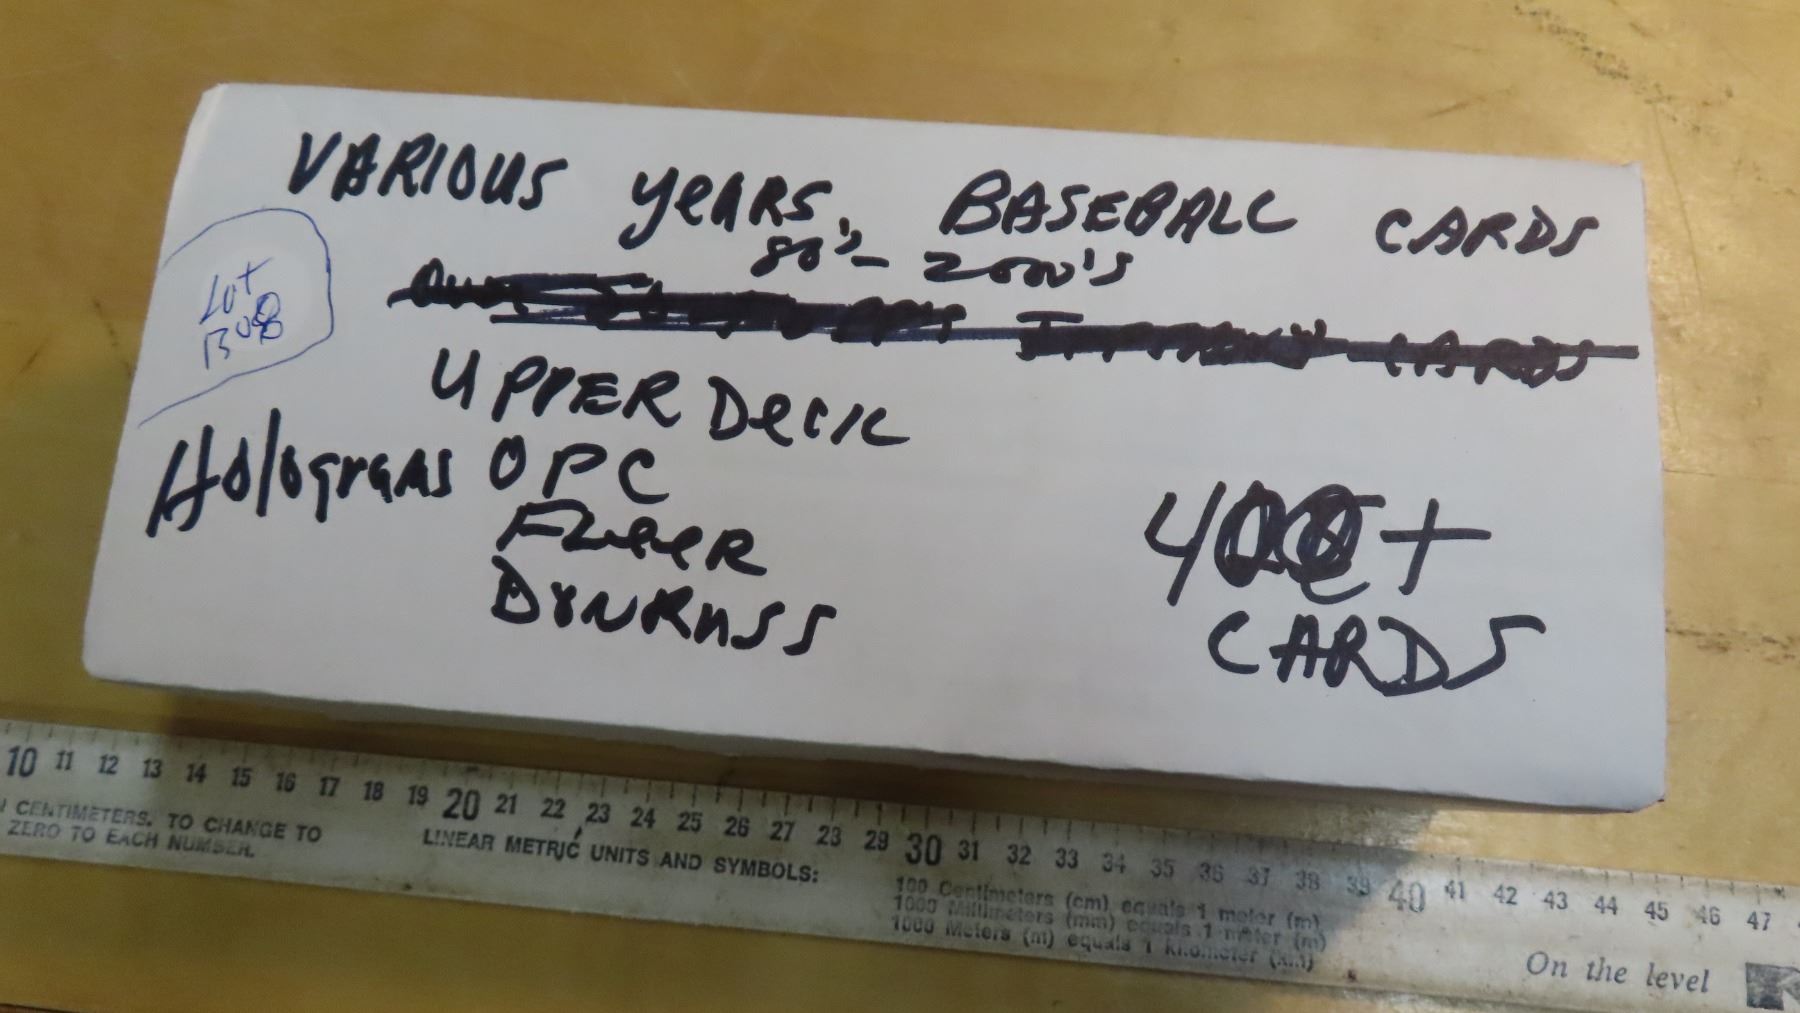 VARIOUS YEARS, BASEBALL CARDS
80's - 2000's
CARDS
Lot
UPPER DECK
Holograms OPC
FLEER
DONRUSS
400+
CARDS
10 11 12 13 14 15 16 17 18 19 20 21 22 23 24 25 26 27 28 29 30 31 32 33 34 35 36 37 38 39 40 41 42 43 44 45 46 47
CENTIMETERS. TO CHANGE TO
ZERO TO EACH NUMBER.
LINEAR METRIC UNITS AND SYMBOLS:
100 Centimeters (cm) equals 1 meter (m)
1000 Millimeters (mm) equals 1 meter (m)
1000 Meters (m) equals 1 kilometer (km)
On the level